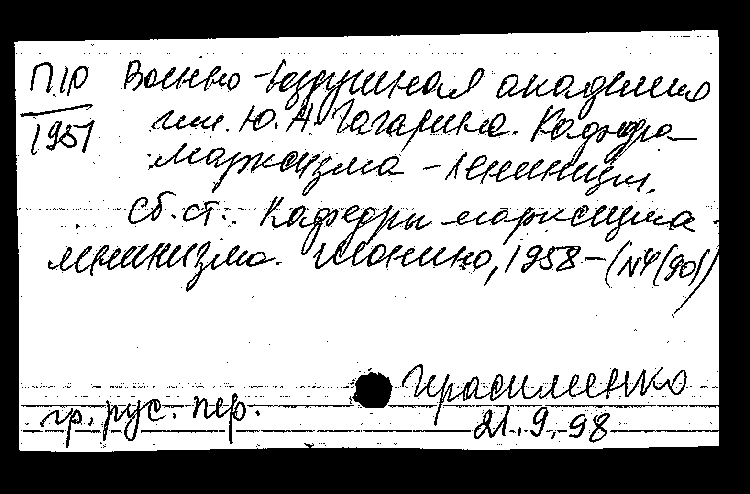 П10 Военно-воздушная академия
1951 им. Ю. А. Гагарина. Кафедра
марксизма-ленинизм.
Сб. ст. Кафедры марксизма-
ленинизма. Монино, 1958 – (N4(90))
Герасименко
гр. рус. пер.
21.9.98